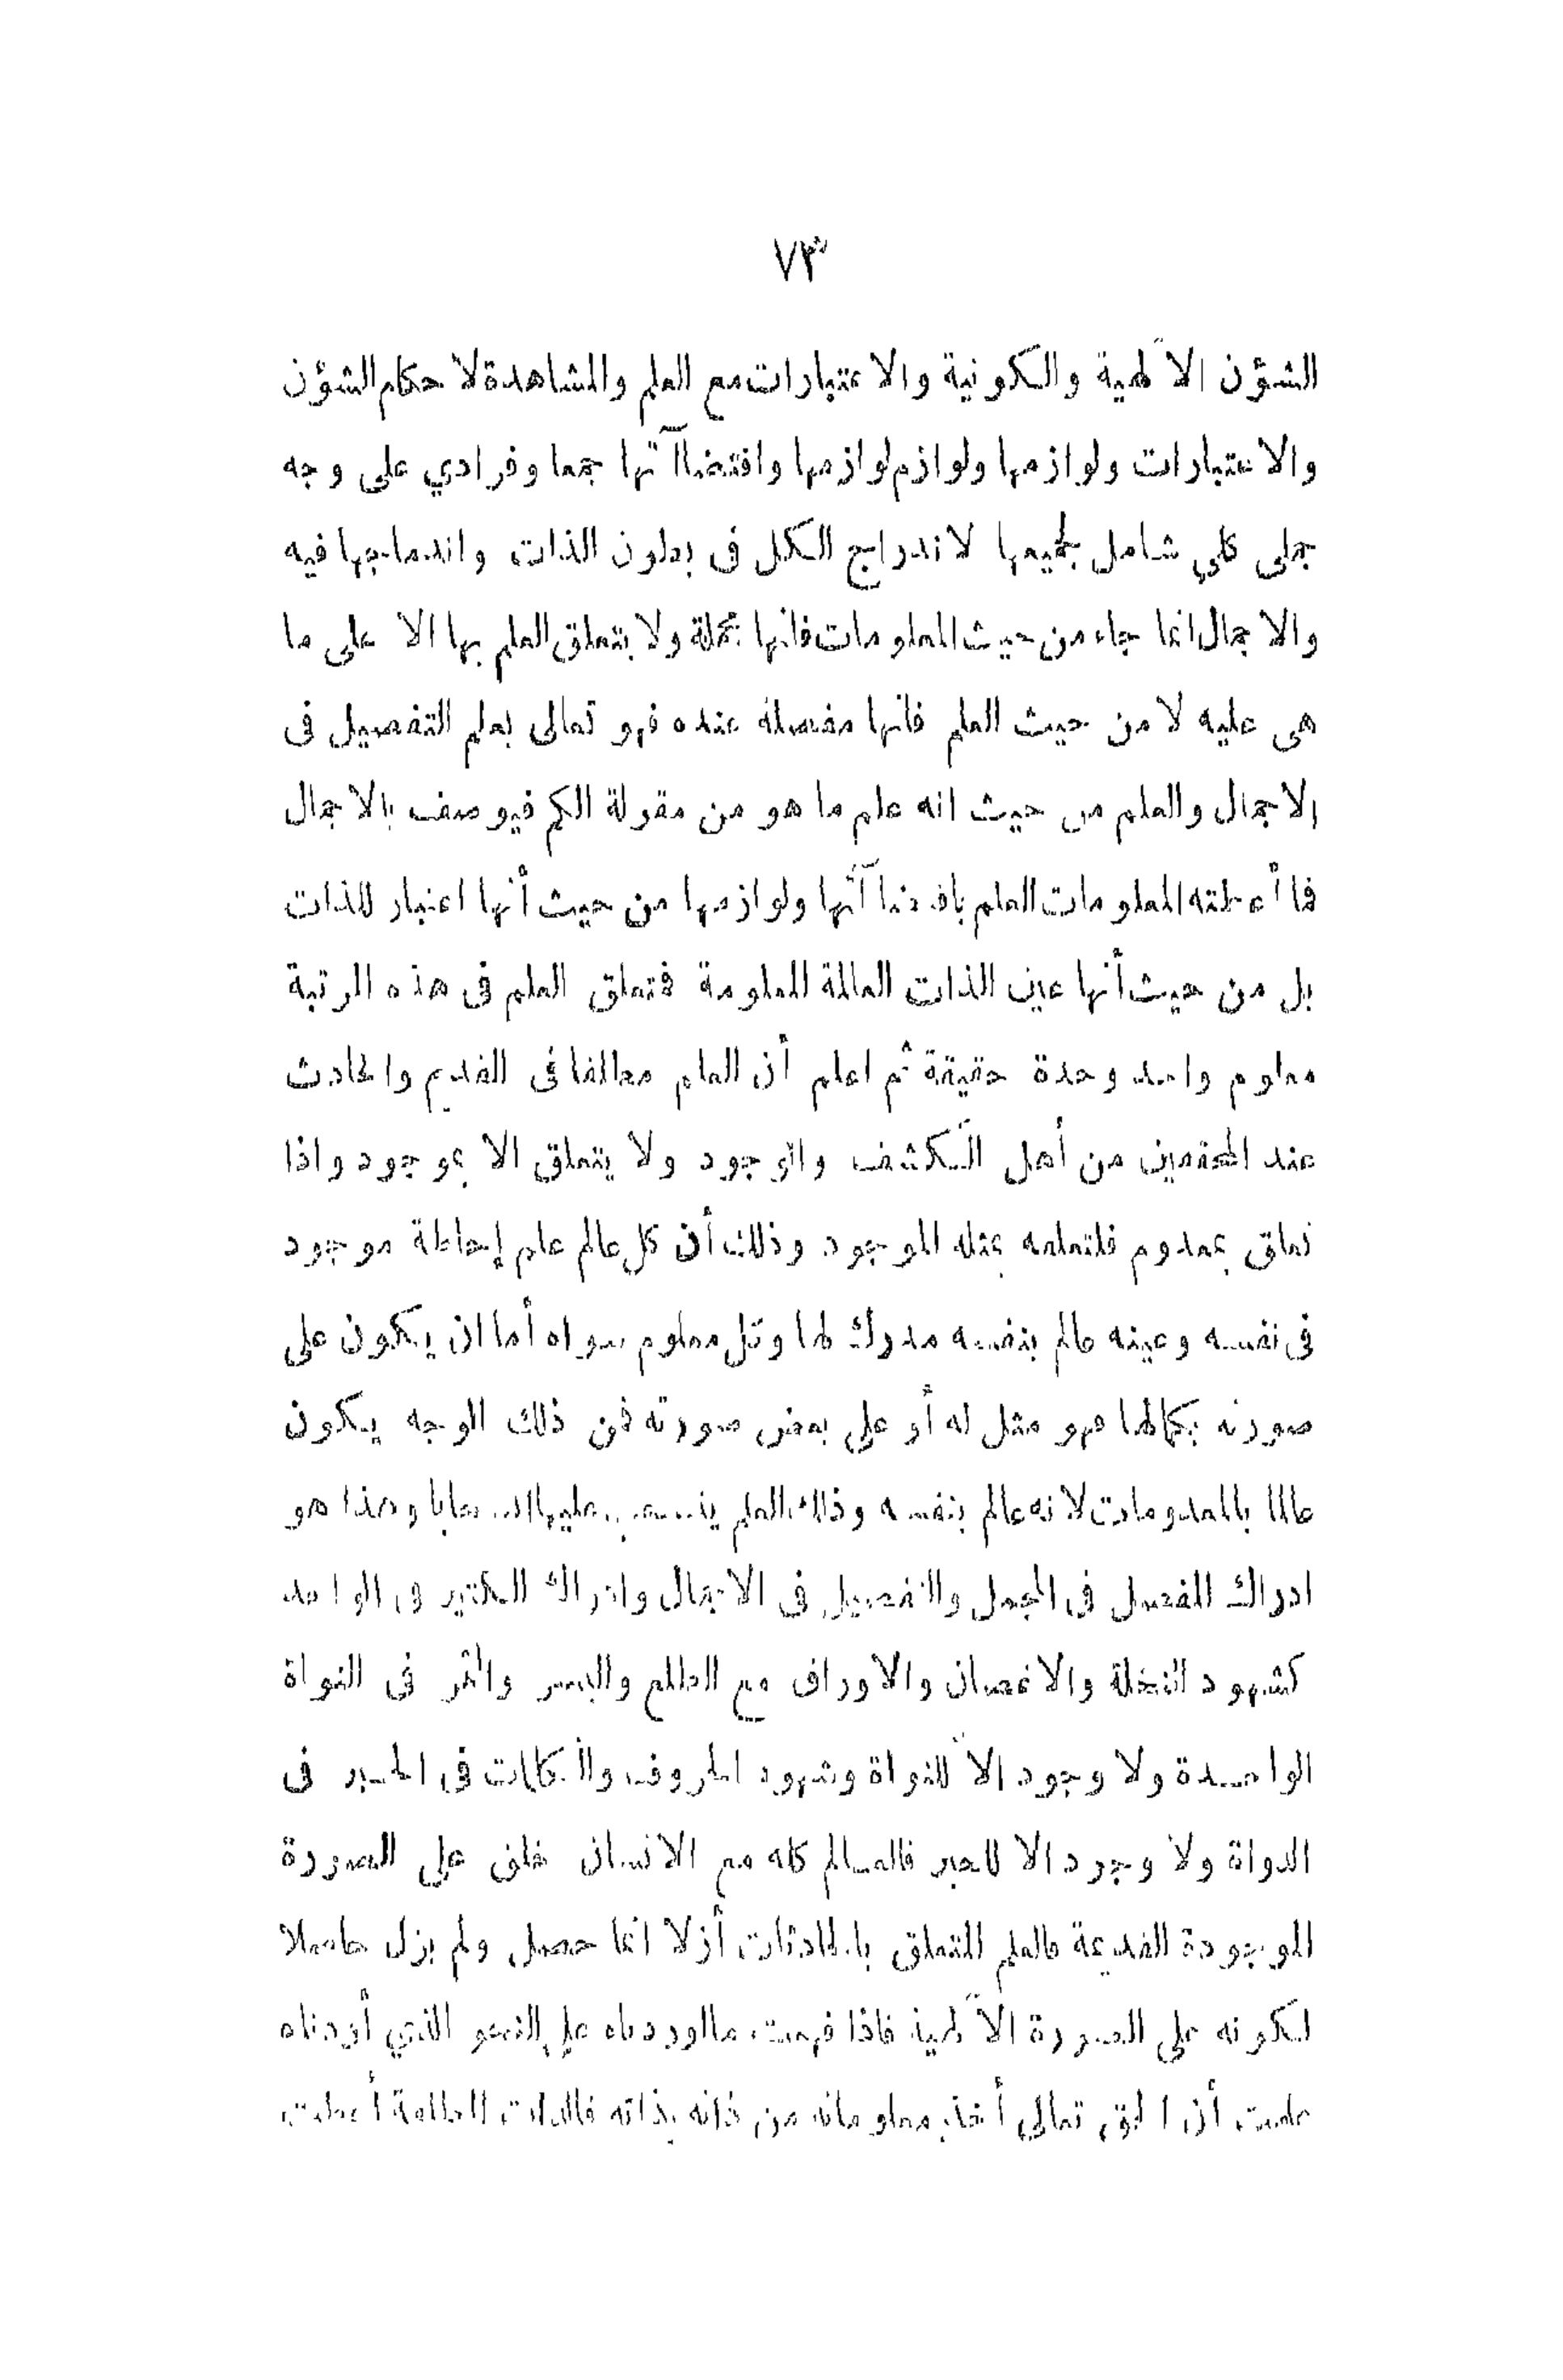 ٧٣
الشؤن الالهية والكونية والاعتبارات مع العلم والمشاهدة لاحكام الشؤن
والاعتبارات ولوازمها ولوازم لوازمها واقتضاآتها جمعا وفرادي على وجه
جملى كلي شامل لجميعها لاندراج الكل فى بطون الذات واندماجها فيه
والاجمال انما جاء من حيث المعلومات فانها مجملة ولا يتعلق العلم بها الا على ما
هى عليه لا من حيث العلم فانها مفصلة عنده فهو تعالى يعلم التفصيل فى
الاجمال والعلم من حيث انه علم ما هو من مقولة الكم فيوصف بالاجمال
فما أعطته المعلومات العلم باقتضاآتها ولوازمها من حيث أنها اعتبار للذات
بل من حيث أنها عين الذات العالمة المعلومة فتعلق العلم فى هذه المرتبة
معلوم واحد وحدة حقيقة ثم اعلم أن العلم مطلقا فى القديم والحادث
عند المحققين من أهل الكشف والوجود ولا يتعلق الا بموجود واذا
تعلق بمعدوم فلتعلقه بمثله الموجود وذلك أن كل عالم علم إحاطة موجود
فى نفسه وعينه عالم بنفسه مدرك لها وكل معلوم سواه أما ان يكون على
صورته بكمالها فهو مثل له أو على بعض صورته فمن ذلك الوجه يكون
عالما بالمعدومات لانه عالم بنفسه وذلك العلم ينسحب عليها انسحابا وهذا هو
ادراك المفصل فى المجمل والتفصيل فى الاجمال وادراك الكثير فى الواحد
كشهود النخلة والاغصان والاوراق مع الطلع والبسر والثمر فى النواة
الواحدة ولا وجود الا للنواة وشهود الحروف والكلمات فى الحبر فى
الدواة ولا وجود الا للحبر فالعالم كله مع الانسان خلق على الصورة
الموجودة القديمة فالعلم المتعلق بالحادثات أزلا انما حصل ولم يزل حاصلا
لكونه على الصورة الالهية فاذا فهمت ما اوردناه على النحو الذي أردناه
علمت أن الحق تعالى أخذ معلوماته من ذاته بذاته فالذات المطلقة أعطت